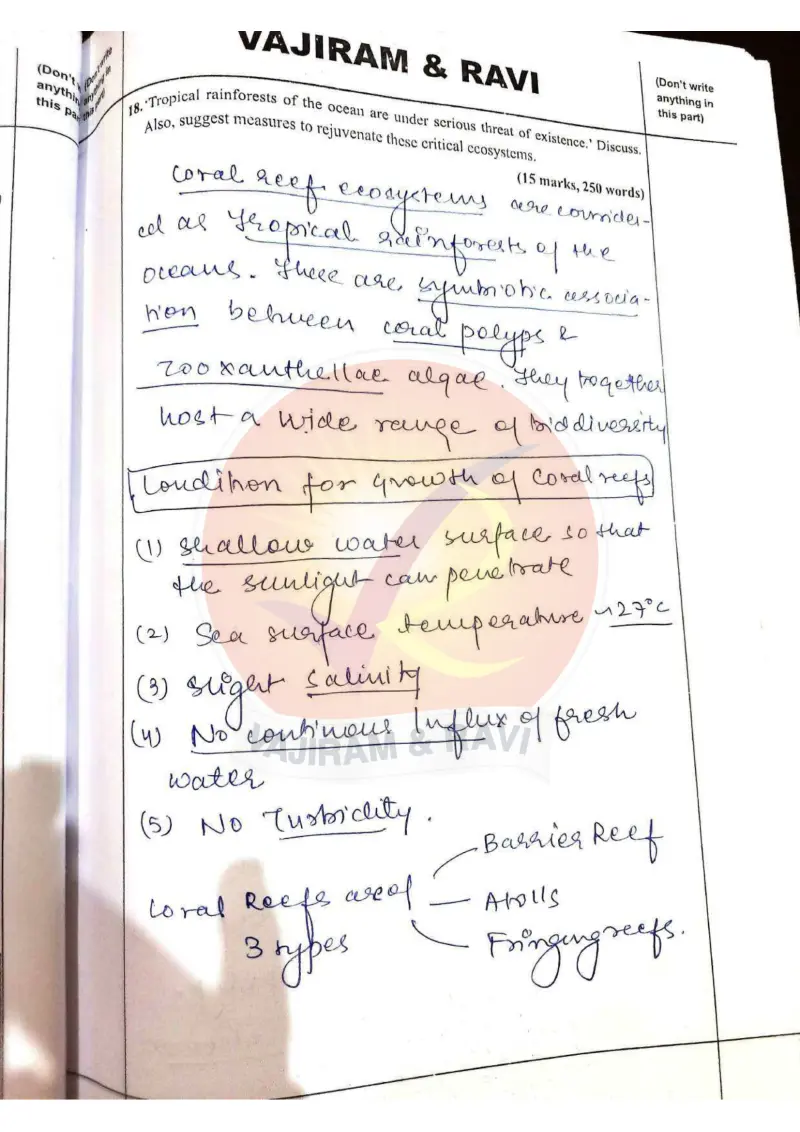 VAJIRAM & RAVI
(Don't
anythin
this pa
(Don't write
anything in
this part)
18. 'Tropical rainforests of the ocean are under serious threat of existence.' Discuss.
Also, suggest measures to rejuvenate these critical ecosystems.
(15 marks, 250 words)
Coral reef ecosystems are consider-
ed as Tropical rainforests of the
oceans. These are symbiotic associa-
tion between coral polyps &
zooxanthellae algae. They together
host a wide range of biodiversity
Condition for growth of Coral reefs
(1) Shallow water surface so that
the sunlight can penetrate
(2) Sea surface temperature ~27°C
(3) Slight Salinity
(4) No continous Influx of fresh
water
(5) No Turbidity.
Coral Reefs are of
3 types
Barrier Reef
Atolls
Fringing reefs.
VAJIRAM & RAVI